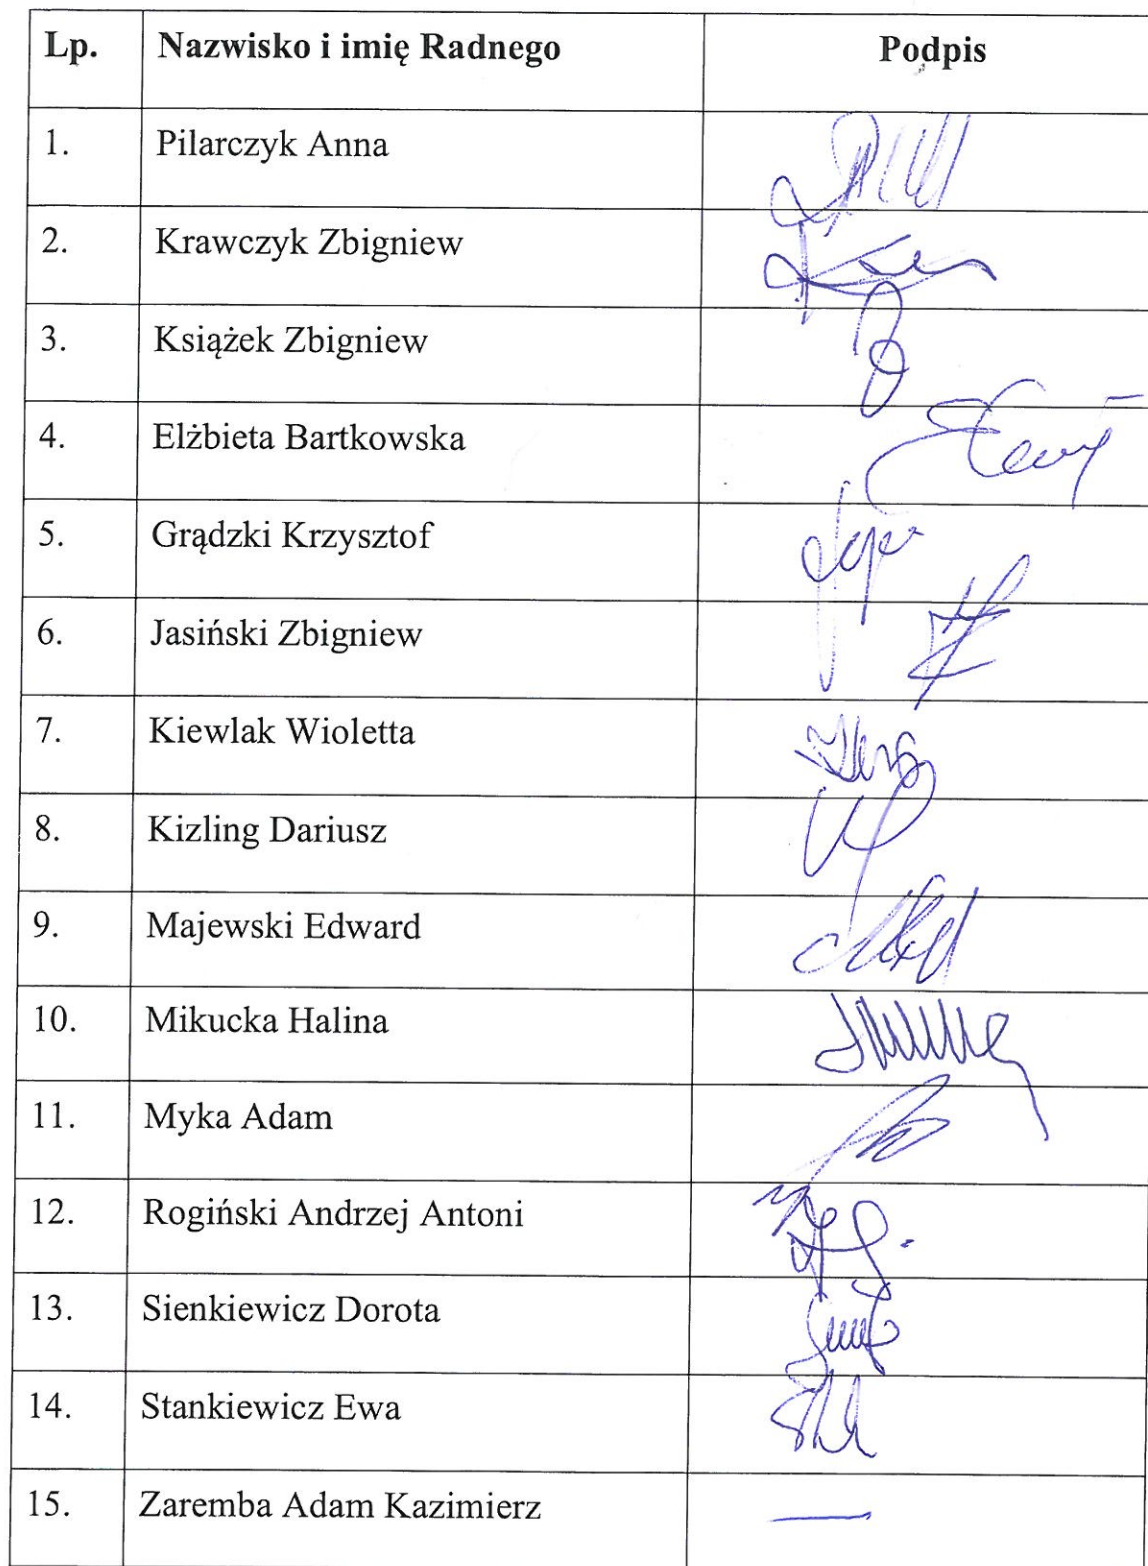 Lp. Nazwisko i imię Radnego Podpis
1. Pilarczyk Anna
2. Krawczyk Zbigniew
3. Książek Zbigniew
4. Elżbieta Bartkowska
5. Grądzki Krzysztof
6. Jasiński Zbigniew
7. Kiewlak Wioletta
8. Kizling Dariusz
9. Majewski Edward
10. Mikucka Halina
11. Myka Adam
12. Rogiński Andrzej Antoni
13. Sienkiewicz Dorota
14. Stankiewicz Ewa
15. Zaremba Adam Kazimierz